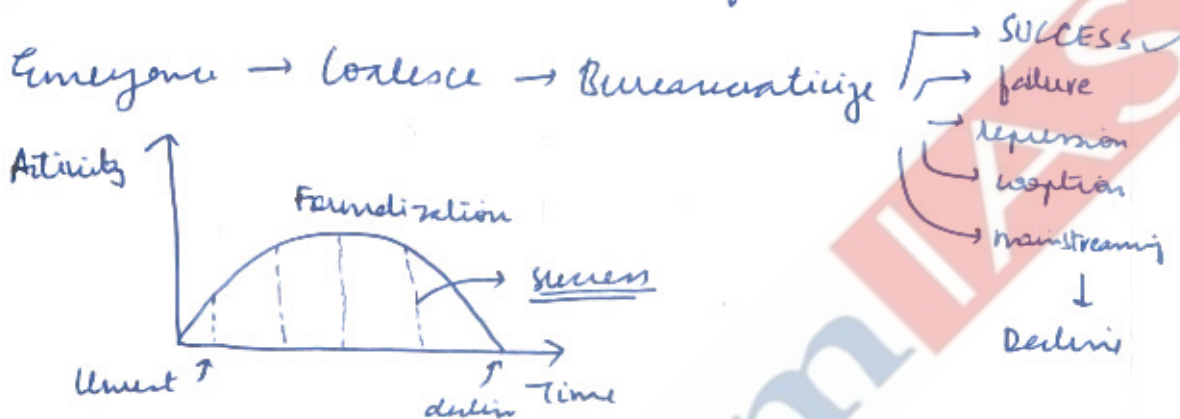 Emergence → Coalesce → Bureaucraticize
→ SUCCESS ✓
→ failure
→ repression
→ cooption
→ mainstreaming
↓
Decline
Activity
Formalization
→ success
Unrest ↑
↑ declin
Time
IAS
m